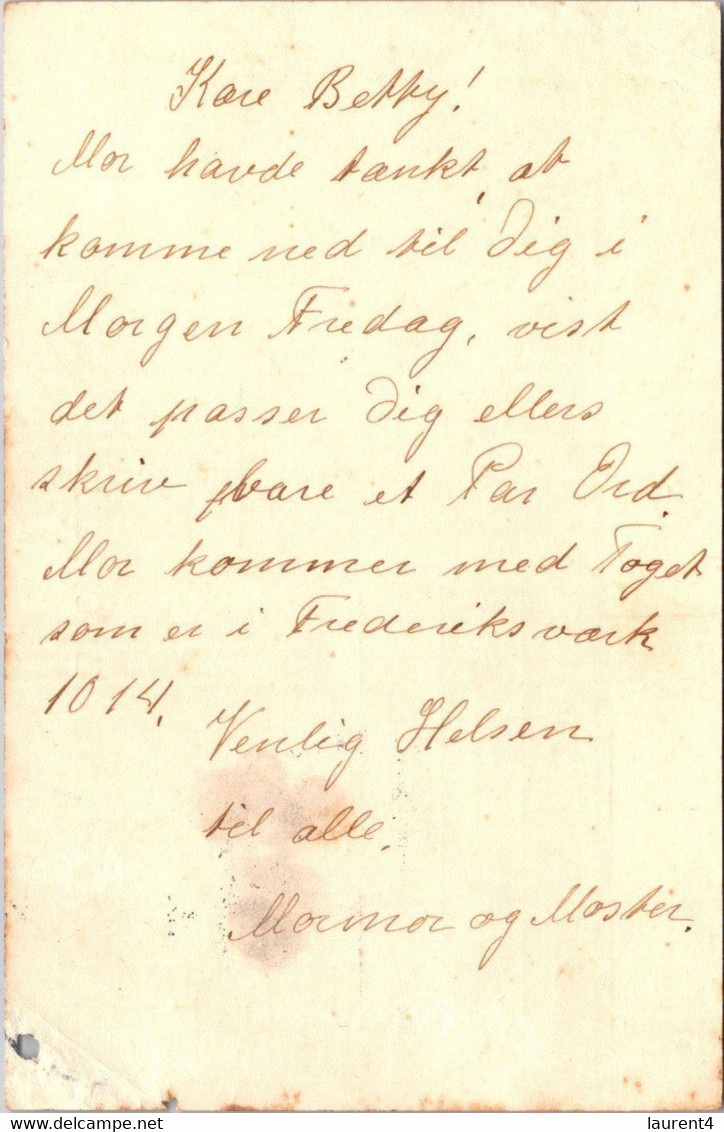 Kære Betty!
Mor havde tænkt, at
komme ned til Dig i
Morgen Fredag, vist
det passer Dig ellers
skriv bare et Par Ord.
Mor kommer med Toget
som er i Frederiksværk
10 14.
Venlig Helsen
til alle.
Mormor og Moster.
laurent4